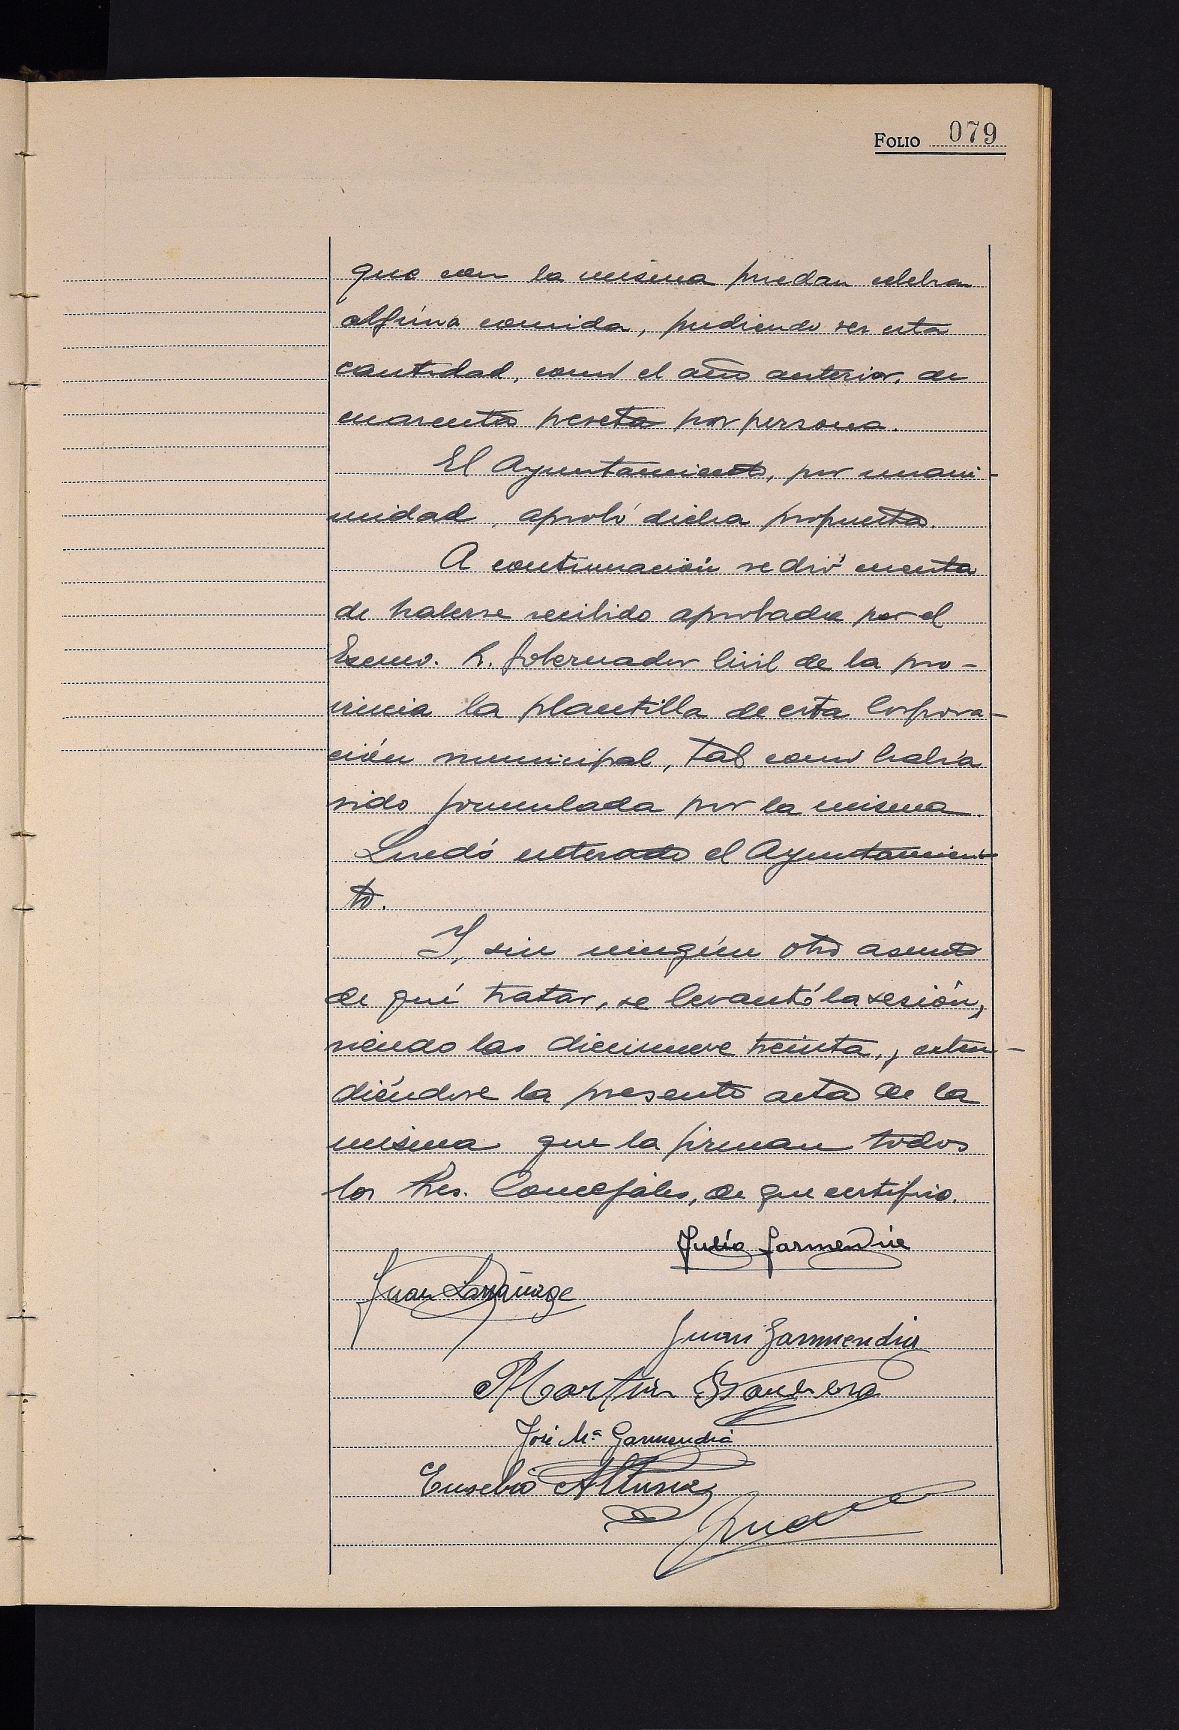 FOLIO 079
que con la misma puedan celebrar
alguna comida, pudiendo ser esta
cantidad, como el año anterior, de
cuarenta peseta por persona.
El Ayuntamiento, por unani-
midad, aprobó dicha propuesta.
A continuación se dió cuenta
de haberse recibido aprobada por el
Excmo. Sr. Gobernador Civil de la pro-
vincia la plantilla de esta Corpora-
ción municipal, tal como había
sido formulada por la misma.
Quedó enterado el Ayuntamien-
to.
Y, sin ningún otro asunto
de qué tratar, se levantó la sesión,
siendo las diecinueve treinta, exten-
diéndose la presente acta de la
misma que la firman todos
los Sres. Concejales, de que certifico.
Julio Garmendia
Juan Larrañaga
Juan Garmendia
Martin
José Mª Garmendia
Eusebio Altuna